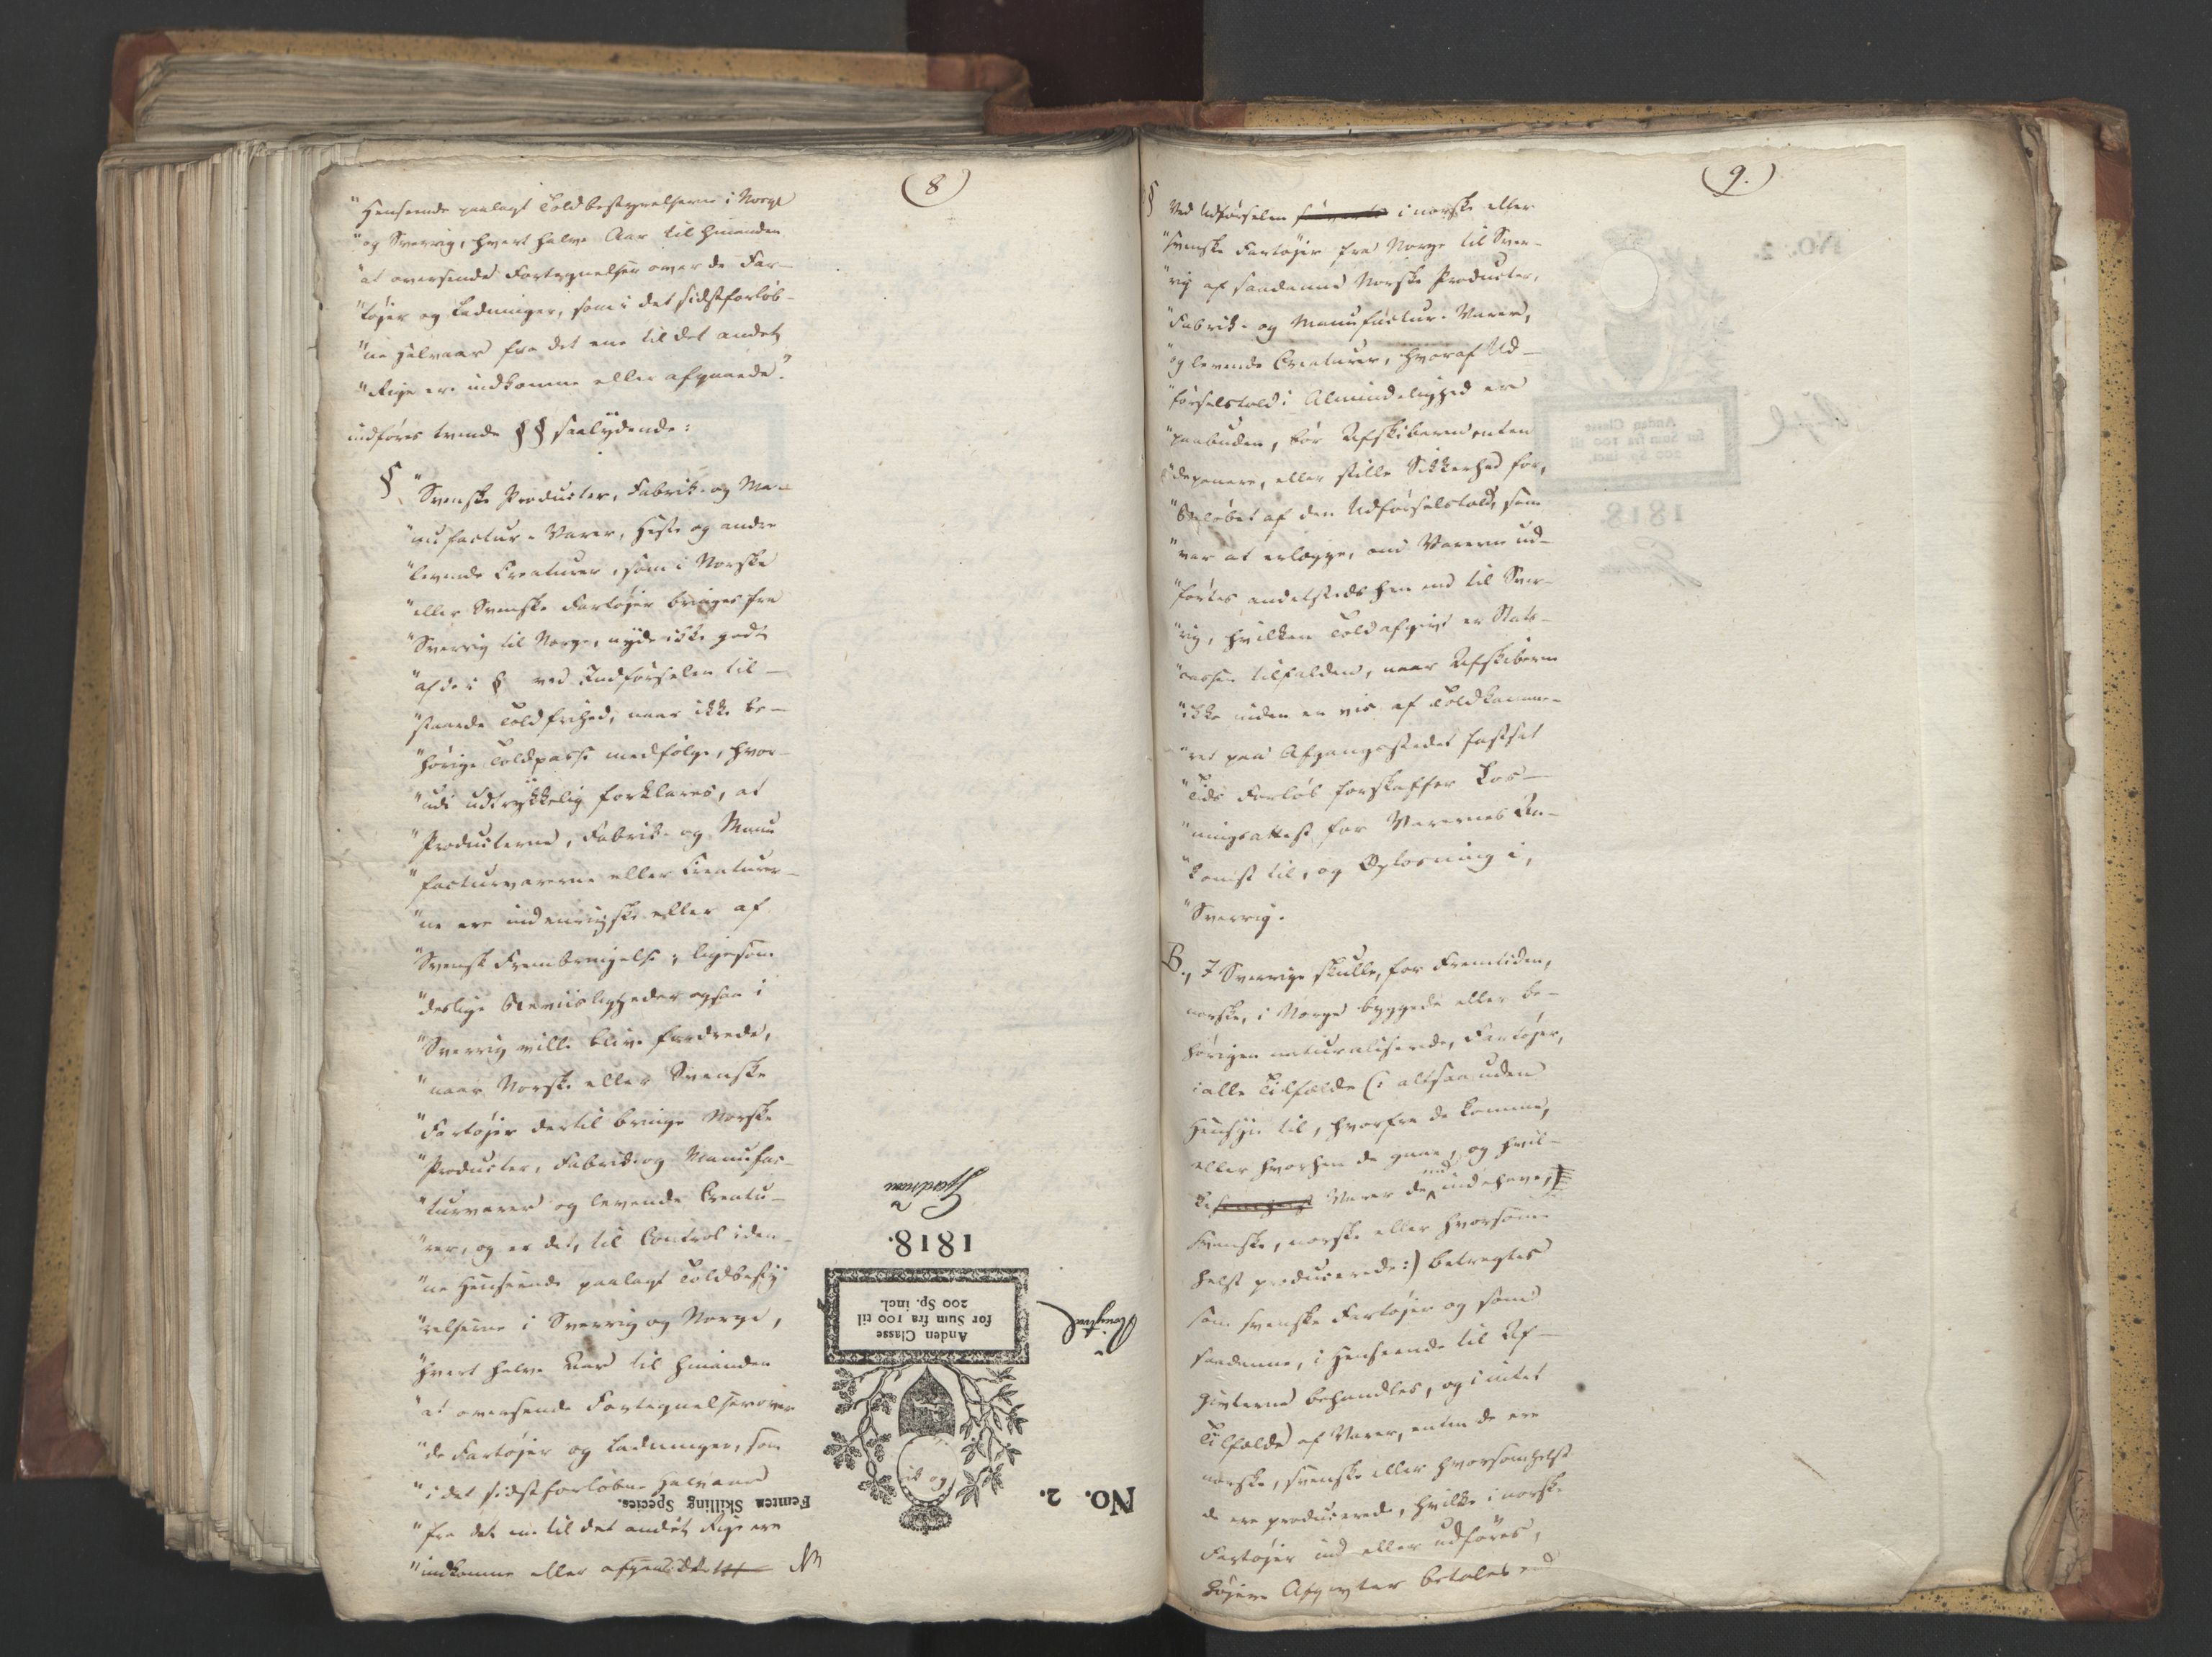 (8)
"Henseende paalagt Toldbestyrelserne i Norge
"og Sverrig, hvert halve Aar til hinanden
"at oversende Fortegnelser over de Far-
"tøjer og Ladninger, som i det sidstforløb-
"ne Halvaar fra det ene til det andet
"Rige ere indkomne eller afgaaede."
indføres tvende §§ saalydende:
§. "Svenske Producter, Fabrik- og Ma-
"nufactur-Varer, Heste og andre
"levende Creaturer, som i Norske
"eller Svenske Fartøjer bringes fra
"Sverrig til Norge, nyde ikke godt
"af de i § ved Indførselen til-
"staaede Toldfrihed, naar ikke be-
"hørige Toldpasse medfølge, hvor-
"udi udtrykkelig forklares, at
"Producterne, Fabrik- og Manu
"facturvarerne eller Creaturer-
"ne ere indenrigske eller af
"Svensk Frembringelse; ligesom
"deslige Beviisligheder ogsaa i
"Sverrig ville blive fordrede,
"naar Norske eller Svenske
"Fartøjer dertil bringe Norske
"Producter, Fabrik- og Manufac-
"turvarer og levende Creatu-
"rer, og er det, til Control i den-
"ne Henseende paalagt Toldbesty
"relserne i Sverrig og Norge,
"hvert halve Aar til hinanden
"at oversende Fortegnelser over
"de Fartøjer og Ladninger, som
"i det sidstforløbne Halvaar
"fra det ene til det andet Rige ere
"indkomne eller
No. 2.
Femten Skilling Species.
Anden Classe
for Sum fra 100 til
200 Sp. incl.
1818.
9.)
§ Ved Udførselen i norske eller
"svenske Fartøjer fra Norge til Sver-
"rig af saadanne Norske Producter,
"Fabrik- og Manufactur-Varer,
"og levende Creaturer, hvoraf Ud-
"førselstold i Almindelighed er
"paabuden, bør Afskiberen enten
"deponere, eller stille Sikkerhed for,
"Beløbet af den Udførselstold, som
"var at erlægge, om Varerne ud-
"førtes andetsteds hen end til Sver-
"rig, hvilken Toldafgivt er Stats-
"cassen tilfalden, naar Afskiberen
"ikke inden en vis af Toldkamme-
"ret paa Afgangsstedet fastsat
"Tids Forløb forskaffer Los-
"ningsattest for Varernes An-
"komst til, og Oplosning i,
"Sverrig.
B., I Sverrige skulle, for Fremtiden,
norske, i Norge byggede eller be-
hørigen naturaliserede, Fartøjer,
i alle Tilfælde (: altsaa uden
Hensyn til, hvorfra de komme,
eller hvorhen de gaae, og hvil-
ke Varer de indehave,
svenske, norske eller hvorsom-
helst producerede:) betragtes
som svenske Fartøjer og som
saadanne, i Henseende til Af-
givterne behandles, og i intet
Tilfælde af Varer, enten de ere
norske, svenske eller hvorsomhelst
de ere producerede, hvilke i norske
Fartøjer ind eller udføres,
højere Afgivter betales end